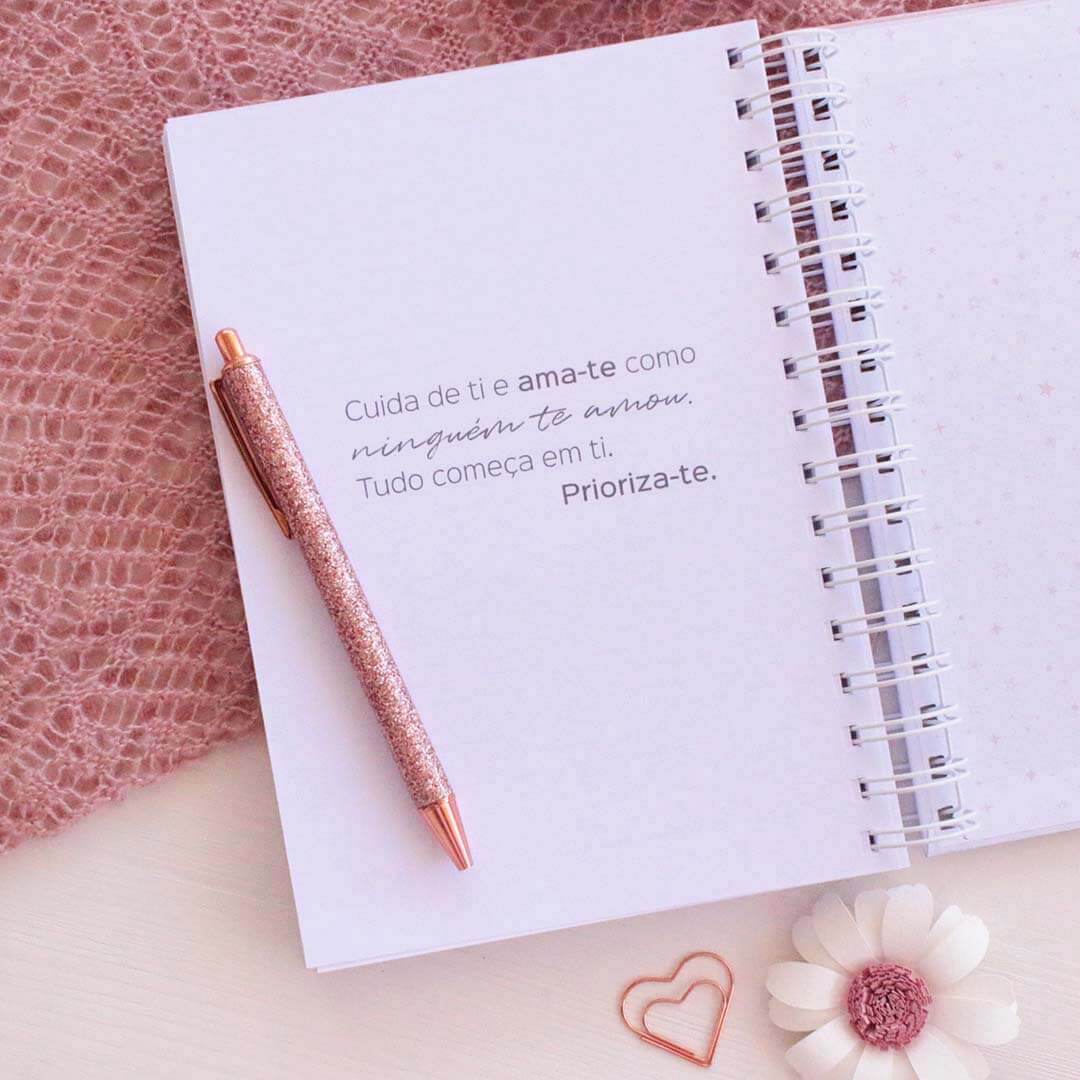 Cuida de ti e ama-te como
ninguém te amou.
Tudo começa em ti.
Prioriza-te.